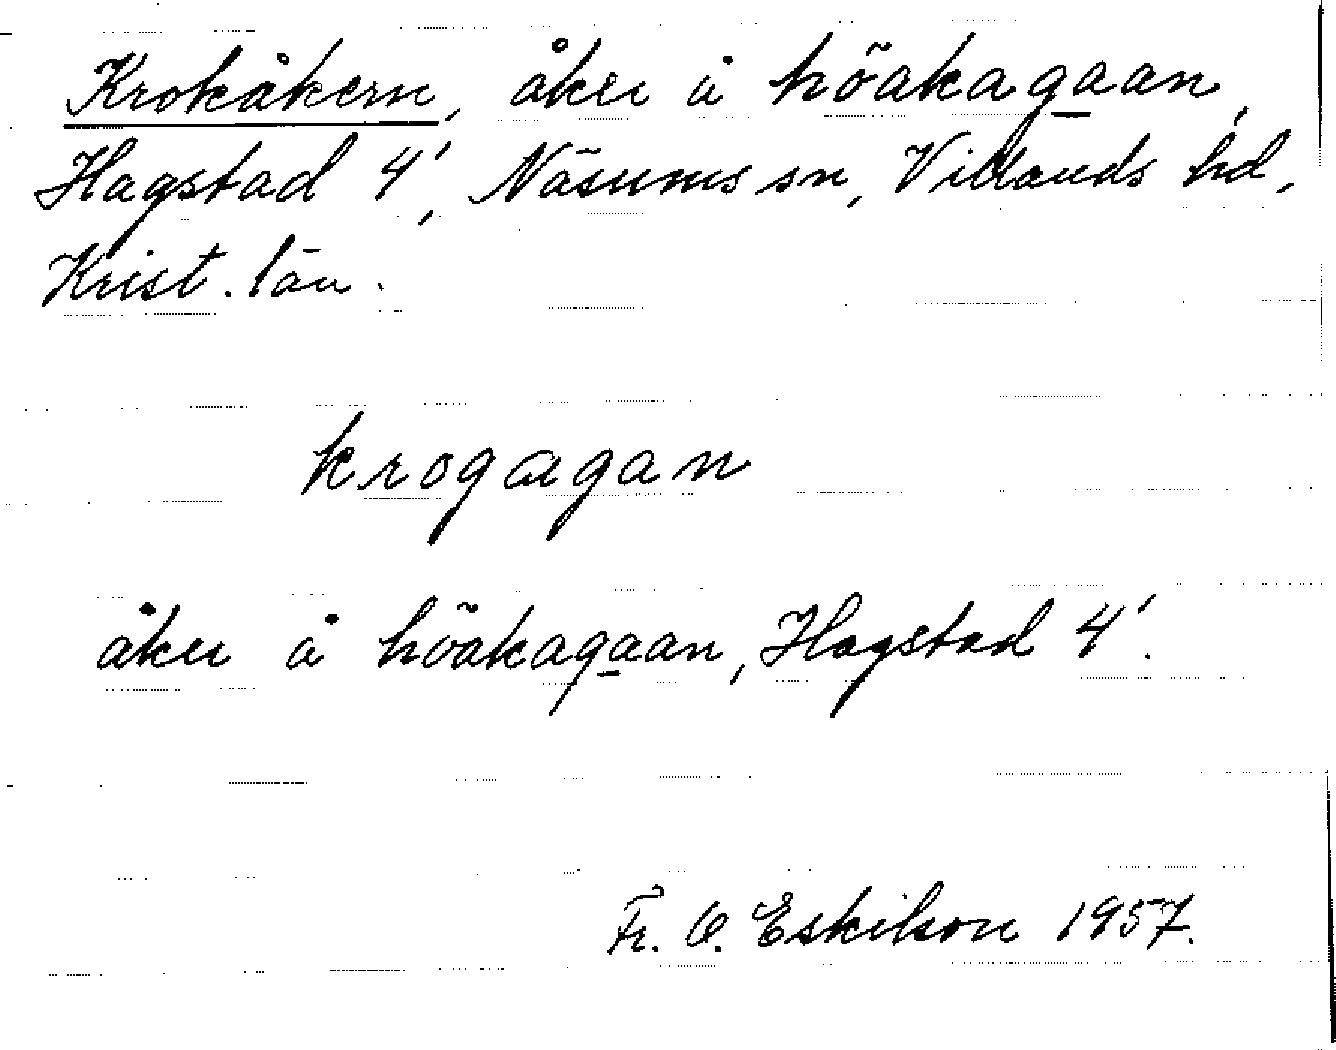 Krokåkern, åker å höakagaan,
Hagstad 4', Näsums sn, Villands hd,
Krist. län.
krogagan
åker å höakagaan, Hagstad 4'.
Fr. O. Eskilson 1957.